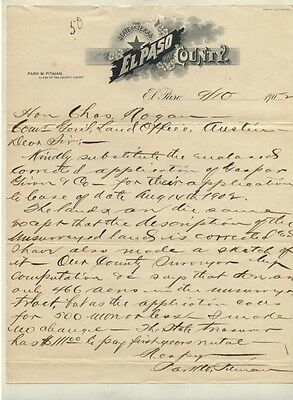 50
THE
STATE OF TEXAS
EL PASO
COUNTY.
PARK W. PITMAN,
CLERK OF THE COUNTY COURT.
El Paso, 9/10 1902
Hon Chas. Rogan
Com'r Gen'l Land Office, Austin
Dear Sir:
Kindly substitute the enclosed
corrected application of Gaspar
Giron & Co - for their application
to lease of date Aug 14th 1902.
The lands are the same
except that the description of the
unsurveyed land is corrected &
I have also made a sketch of
it - Our County Surveyor
computation & says that there are
only 466 acres in the unsurveyed
tract but as the application calls
for 500 more or less I made
no change - The State Treasurer
has $ to pay first years rental -
Respy
Park W. Pitman